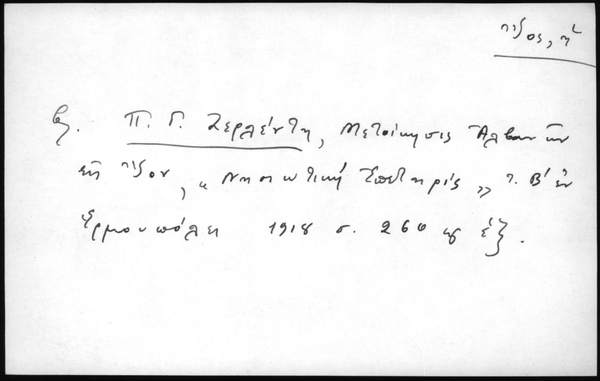 Ἴος, ἡ
βλ. Π. Γ. Ζερλέντη, Μετοίκησις Ἀλβανῶν
εἰς Ἴον, « Νησιωτική Ἐπετηρίς » τ. Β' ἐν
Ἑρμουπόλει 1918 σ. 260 κἑξ.